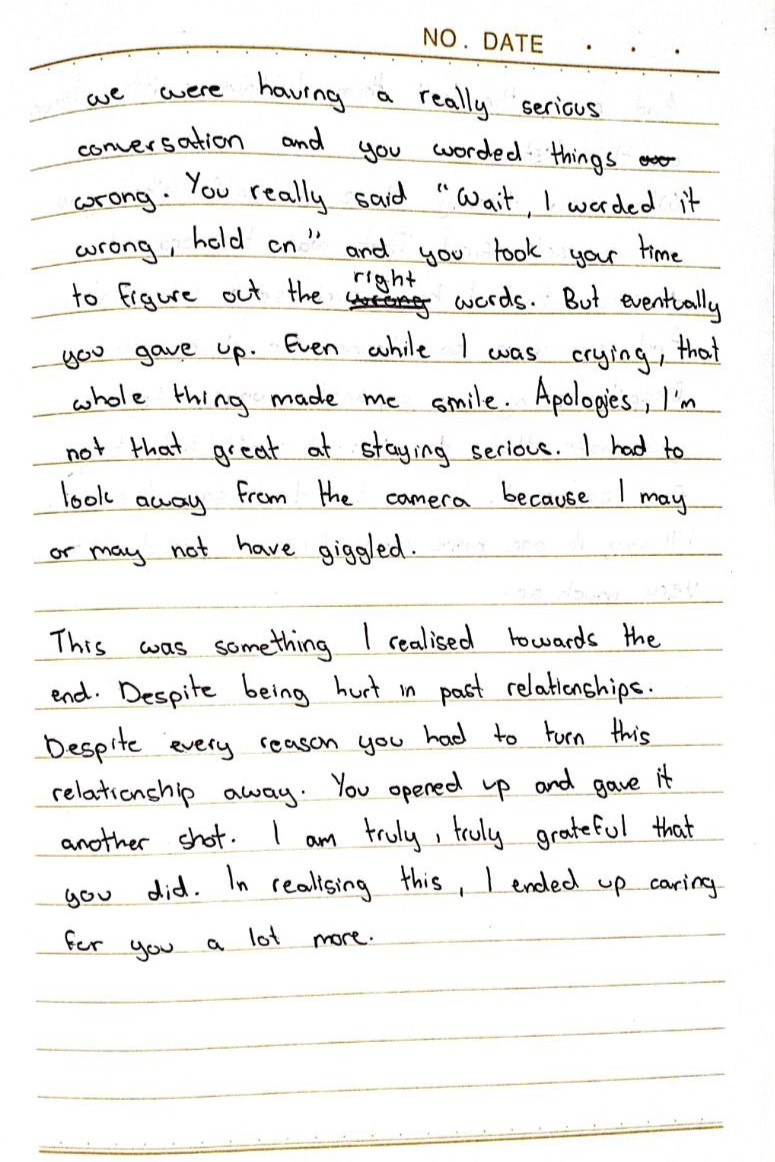 NO. DATE . . .
we were having a really serious
conversation and you worded things
wrong. You really said "Wait, I worded it
wrong, hold on" and you took your time
to figure out the right words. But eventually
you gave up. Even while I was crying, that
whole thing made me smile. Apologies, I'm
not that great at staying serious. I had to
look away from the camera because I may
or may not have giggled.
This was something I realised towards the
end. Despite being hurt in past relationships.
Despite every reason you had to turn this
relationship away. You opened up and gave it
another shot. I am truly, truly grateful that
you did. In realising this, I ended up caring
for you a lot more.